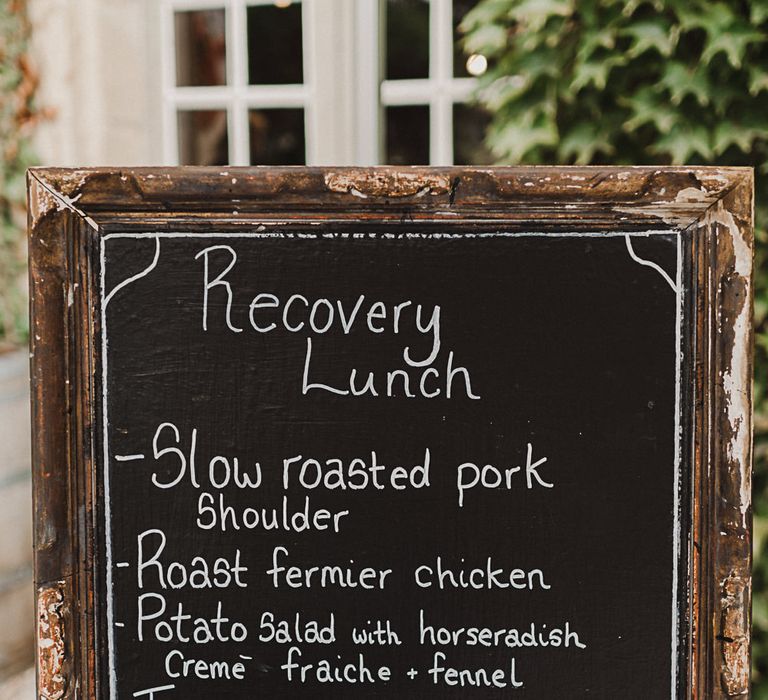 Recovery
Lunch
- Slow roasted pork
Shoulder
- Roast fermier chicken
- Potato Salad with horseradish
Cremē fraiche + fennel